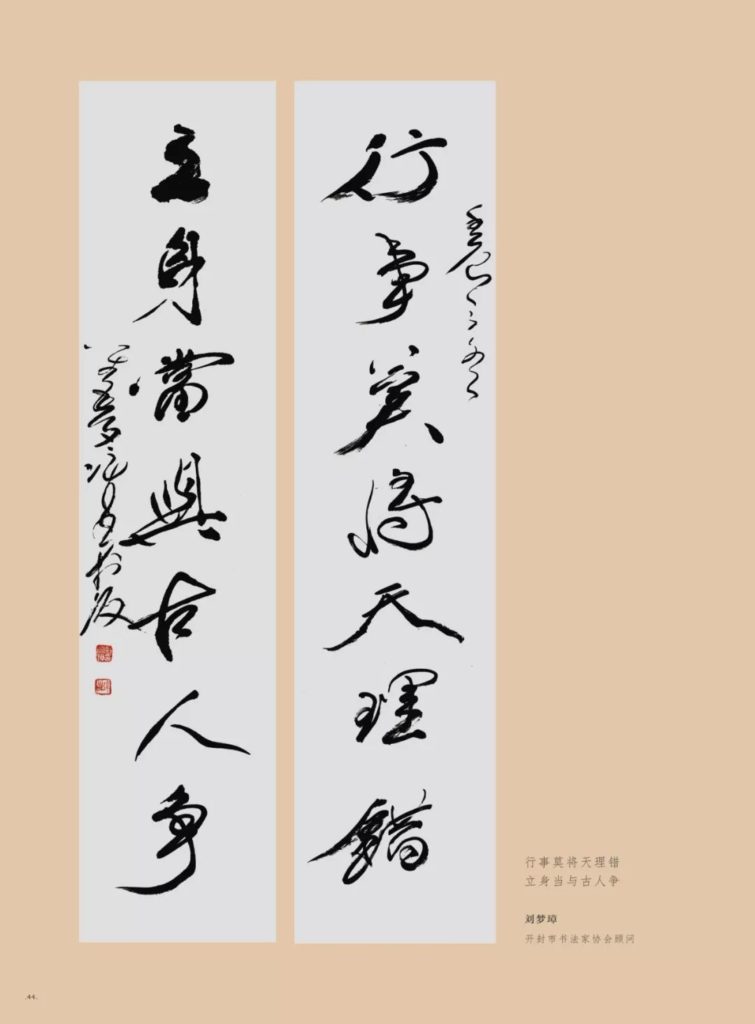 行事莫将天理錯
立身當與古人争
行事莫将天理错
立身当与古人争
刘梦璋
开封市书法家协会顾问
.44.